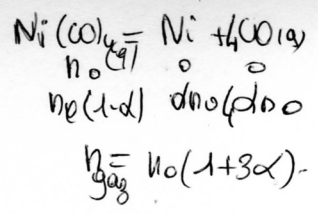 Ni(CO)4(g) = Ni + 4CO(g)
n0 0 0
n0(1-α) αn0 4αn0
ngaz = n0(1+3α).